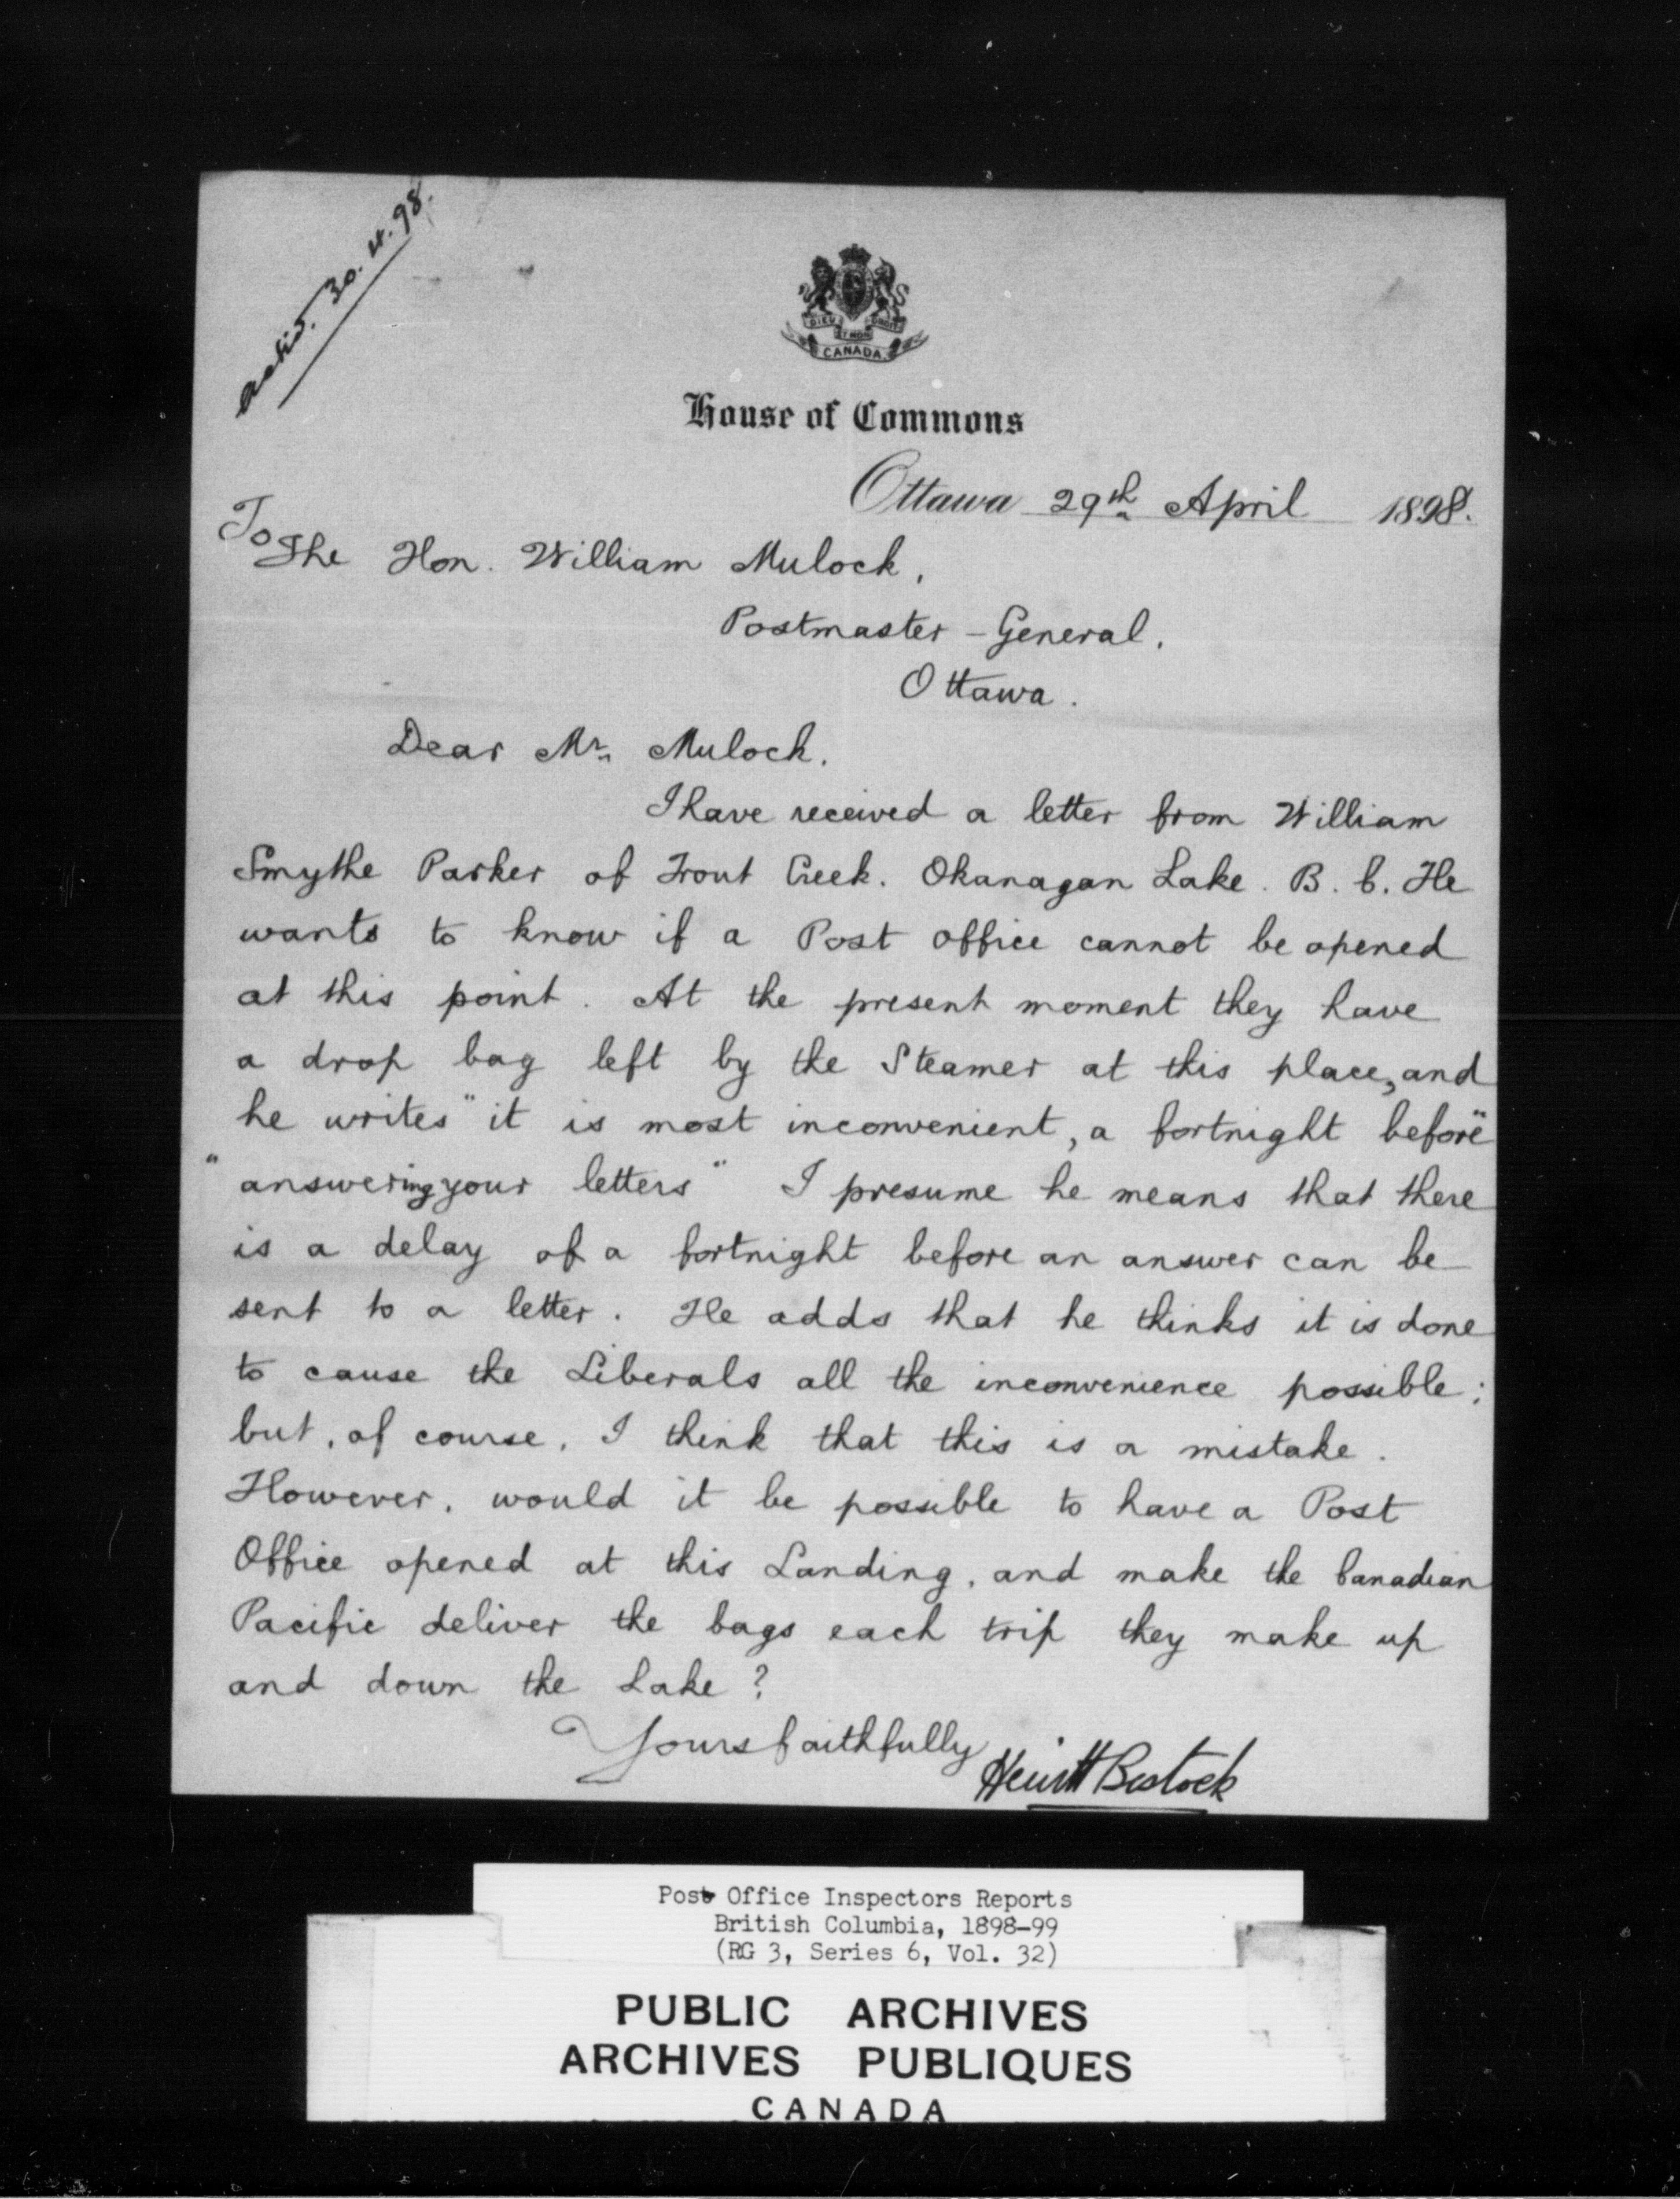 ackd. 30.4.98.
DIEU ET MON DROIT
CANADA
House of Commons
Ottawa 29th April 1898.
To
The Hon. William Mulock,
Postmaster-General.
Ottawa.
Dear Mr. Mulock.
I have received a letter from William
Smythe Parker of Trout Creek. Okanagan Lake. B.C. He
wants to know if a Post Office cannot be opened
at this point. At the present moment they have
a drop bag left by the Steamer at this place, and
he writes "it is most inconvenient, a fortnight before"
"answering your letters" I presume he means that there
is a delay of a fortnight before an answer can be
sent to a letter. He adds that he thinks it is done
to cause the Liberals all the inconvenience possible;
but, of course, I think that this is a mistake.
However, would it be possible to have a Post
Office opened at this Landing, and make the Canadian
Pacific deliver the bags each trip they make up
and down the Lake?
Yours faithfully
Hewitt Bostock
Post Office Inspectors Reports
British Columbia, 1898-99
(RG 3, Series 6, Vol. 32)
PUBLIC ARCHIVES
ARCHIVES PUBLIQUES
CANADA